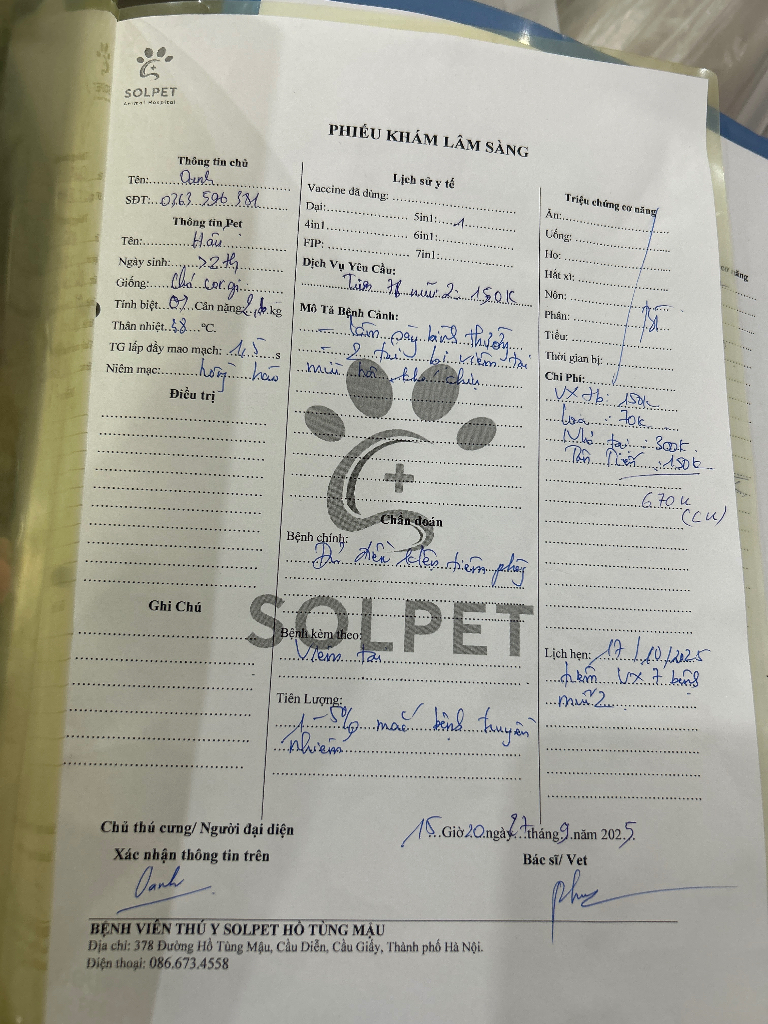 SOLPET
Animal Hospital
PHIẾU KHÁM LÂM SÀNG
Thông tin chủ
Tên: Oanh
SĐT: 0363 596 381
Thông tin Pet
Tên: Hầu
Ngày sinh: >2th
Giống: Chó corgi
Tính biệt Cân nặng kg
Thân nhiệt 38 °C.
TG lấp đầy mao mạch: 1,5 s
Niêm mạc: hồng hào
Điều trị
Ghi Chú
Lịch sử y tế
Vaccine đã dùng:
Dại: 5in1: 1
4in1 6in1:
FIP: 7in1:
Dịch Vụ Yêu Cầu:
Tiêm 7b mũi 2: 150K
Mô Tả Bệnh Cảnh:
- bình thường
- 2 tai bị viêm tai
mùi hôi khó chịu
Chẩn đoán
Bệnh chính:
Đủ điều kiện tiêm phòng
Bệnh kèm theo:
Viêm tai
Tiên Lượng:
1 - 5% mắc bệnh truyền
nhiễm
Triệu chứng cơ năng
Ăn:
Uống:
Ho:
Hắt xì:
Nôn:
Phân:
Tiểu:
Thời gian bị:
Chi Phí:
VX 7b: 150k
Loa : 70k
Nhỏ tai : 300k
: 150k
670k
(CK)
Lịch hẹn: 17/10/2025
tiêm VX 7 bệnh
mũi 2
Chủ thú cưng/ Người đại diện
Xác nhận thông tin trên
Oanh
15 Giờ 20 ngày 27 tháng 9 năm 2025
Bác sĩ/ Vet
BỆNH VIỆN THÚ Y SOLPET HỒ TÙNG MẬU
Địa chỉ: 378 Đường Hồ Tùng Mậu, Cầu Diễn, Cầu Giấy, Thành phố Hà Nội.
Điện thoại: 086.673.4558